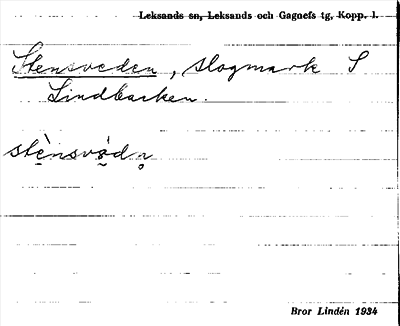 Leksands sn, Leksands och Gagnefs tg, Kopp. l.
Stensveden, slogmark S
Lindbacken.
stènsvὰ̰dn̥
Bror Lindén 1934